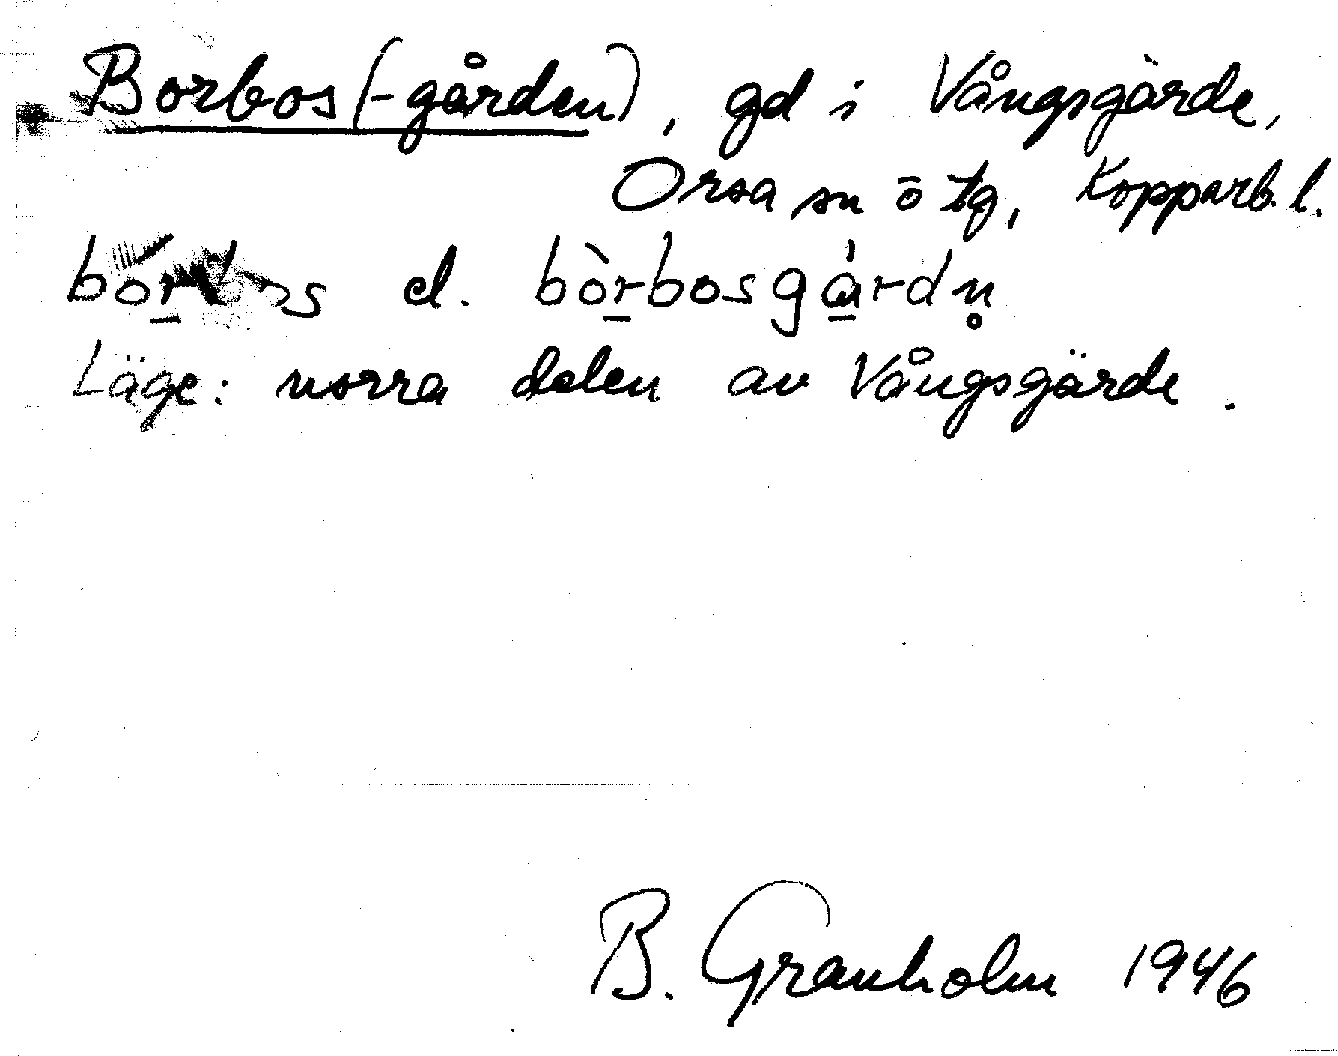 Borbos (-gården), gd i Vångsgärde,
Orsa sn o tg, Kopparb. l.
el. bòrbosgárdn̥
Läge: norra delen av Vångsgärde.
B. Granholm 1946